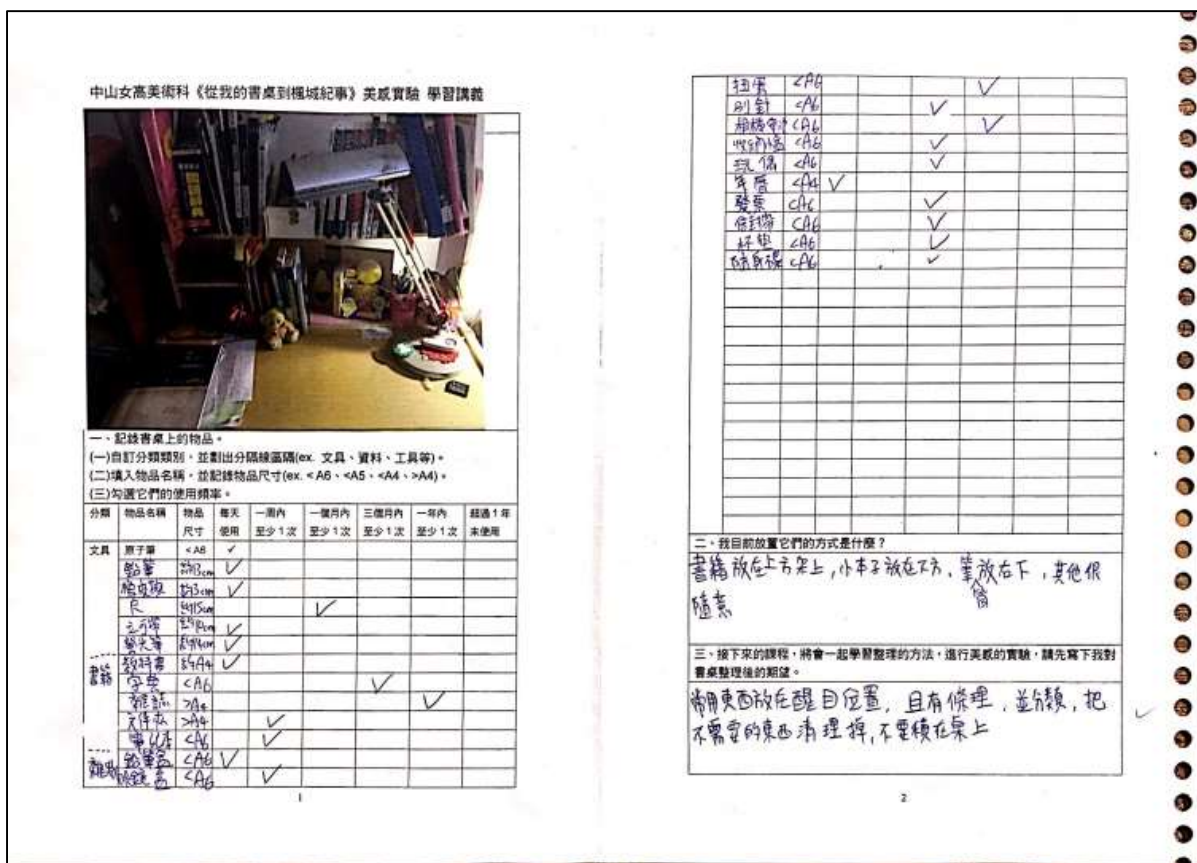 中山女高美術科《從我的書桌到楓城紀事》美感實驗 學習講義
一、記錄書桌上的物品。
(一)自訂分類類別,並劃出分隔線區隔(ex. 文具、資料、工具等)。
(二)填入物品名稱,並記錄物品尺寸(ex. <A6、<A5、<A4、>A4)。
(三)勾選它們的使用頻率。
分類 物品名稱 物品尺寸 每天使用 一周內至少1次 一個月內至少1次 三個月內至少1次 一年內至少1次 超過1年未使用
文具 原子筆 <A6 ✓
鉛筆 約13cm ✓
約13cm ✓
尺 約15cm ✓
立可帶 ✓
螢光筆 約14cm ✓
書籍 教科書 約A4 ✓
字典 <A6 ✓
雜誌 >A4 ✓
文件夾 >A4 ✓
筆記本 <A6 ✓
雜物 鉛筆盒 <A6 ✓
眼鏡盒 <A6 ✓
1
扭蛋 <A6 ✓
別針 <A6 ✓
<A6 ✓
<A6 ✓
玩偶 <A6 ✓
年曆 <A4 ✓
發票 <A6 ✓
<A6 ✓
杯墊 <A6 ✓
隨身碟 <A6 ✓
二、我目前放置它們的方式是什麼?
書籍放在上方架上,小本子放在下方,筆筒放右下,其他很
隨意
三、接下來的課程,將會一起學習整理的方法,進行美感的實驗,請先寫下我對
書桌整理後的期望。
常用東西放在醒目位置,且有條理,並分類,把
不需要的東西清理掉,不要積在桌上
2